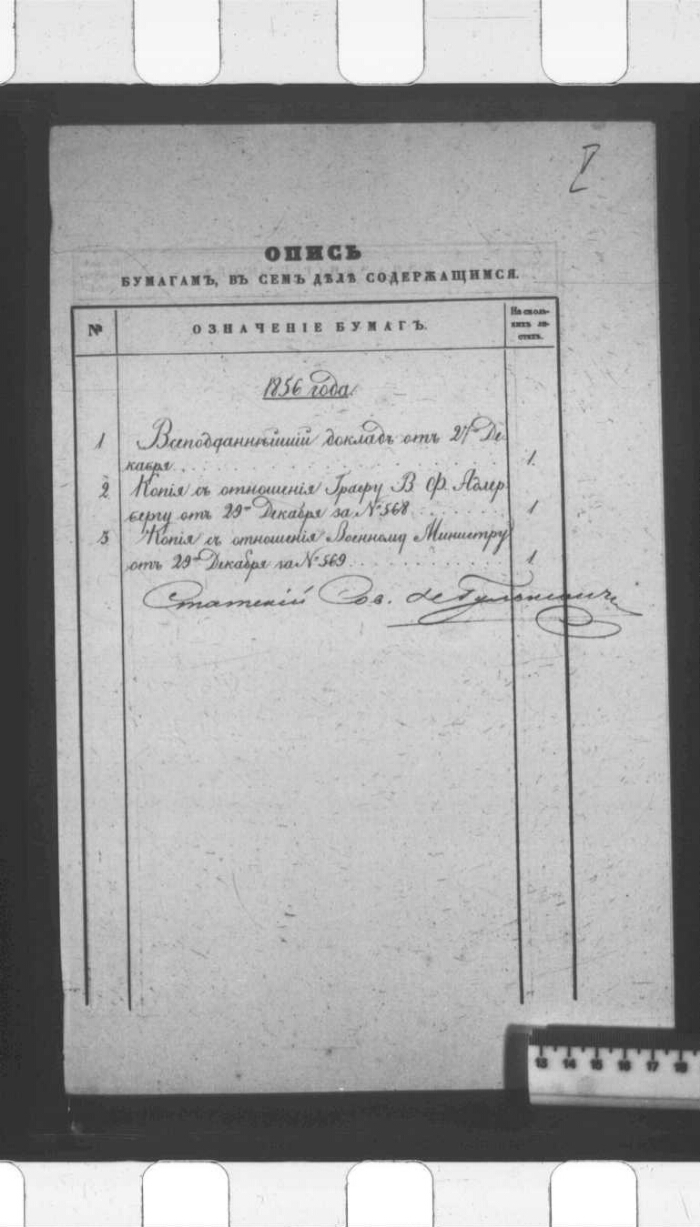 I
ОПИСЬ
БУМАГАМЪ, ВЪ СЕМЪ ДѢЛѢ СОДЕРЖАЩИМСЯ.
№
ОЗНАЧЕНІЕ БУМАГЪ.
На сколь-
кихъ ли-
стахъ.
1856 года
1 Всеподданнѣйшій докладъ отъ 27го Де
кабря 1
2 Копія съ отношенія Графу В Ф. Адлер
бергу отъ 29го Декабря за № 568 1
3 Копія съ отношенія Военному Министру
отъ 29го Декабря за № 569 1
Статскій Сов.
13 14 15 16 17 18